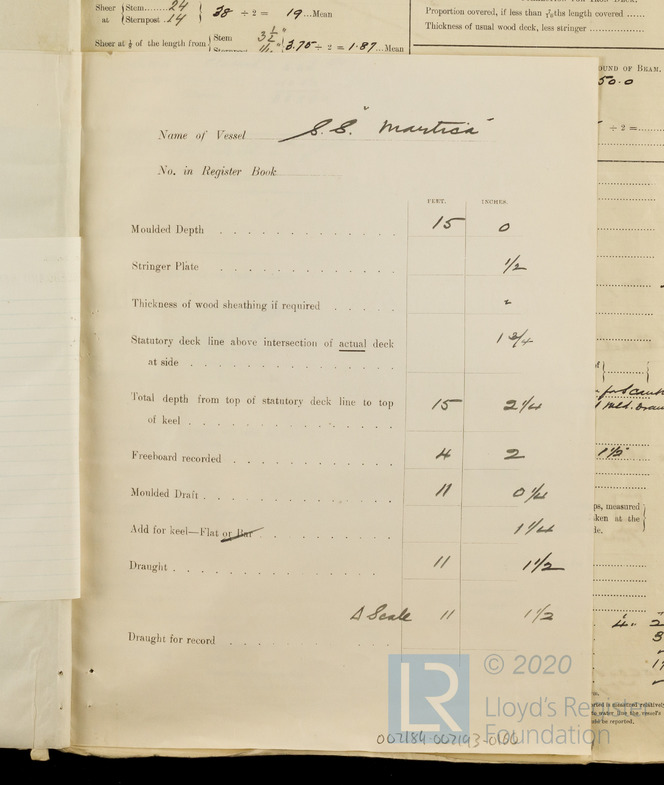 Sheer { Stem...... 24 } 38 ÷ 2 = 19 ...Mean
at { Sternpost .14
Sheer at ⅛ of the length from { Stem 3½ " } 3.75 ÷ 2 = 1.87 ...Mean
Proportion covered, if less than 7/10ths length covered ......
Thickness of usual wood deck, less stringer ...............
OUND OF BEAM.
50.0
÷ 2 =
Name of Vessel S.S. "Martica"
No. in Register Book
FEET. INCHES.
Moulded Depth 15 0
Stringer Plate 1/2
Thickness of wood sheathing if required "
Statutory deck line above intersection of actual deck 1 3/4
at side
Total depth from top of statutory deck line to top 15 2 1/4
of keel
Freeboard recorded 4 2
Moulded Draft 11 0 1/4
Add for keel—Flat or Bar 1 1/4
Draught 11 1 1/2
Δ Scale 11 1 1/2
Draught for record
ps, measured
ken at the
de.
© 2020
Lloyd's Register
Foundation
002184-002193-0166